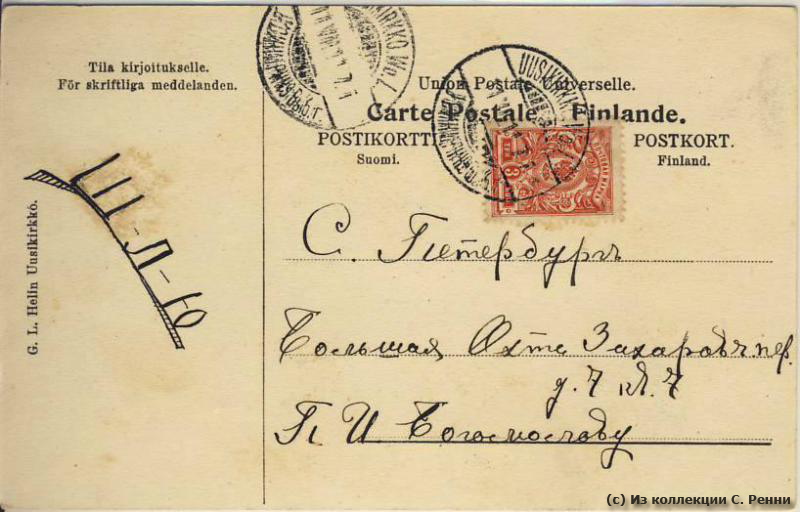 Tila kirjoitukselle.
För skriftliga meddelanden.
G. L. Helin Uusikirkkо.
Union Postale Universelle.
Carte Postale Finlande.
POSTIKORTTI
Suomi.
POSTKORT.
Finland.
С. Петербургъ
Большая Охта Захаровъ пер.
д. 7 кв. 7
П И Богословову
(c) Из коллекции С. Ренни